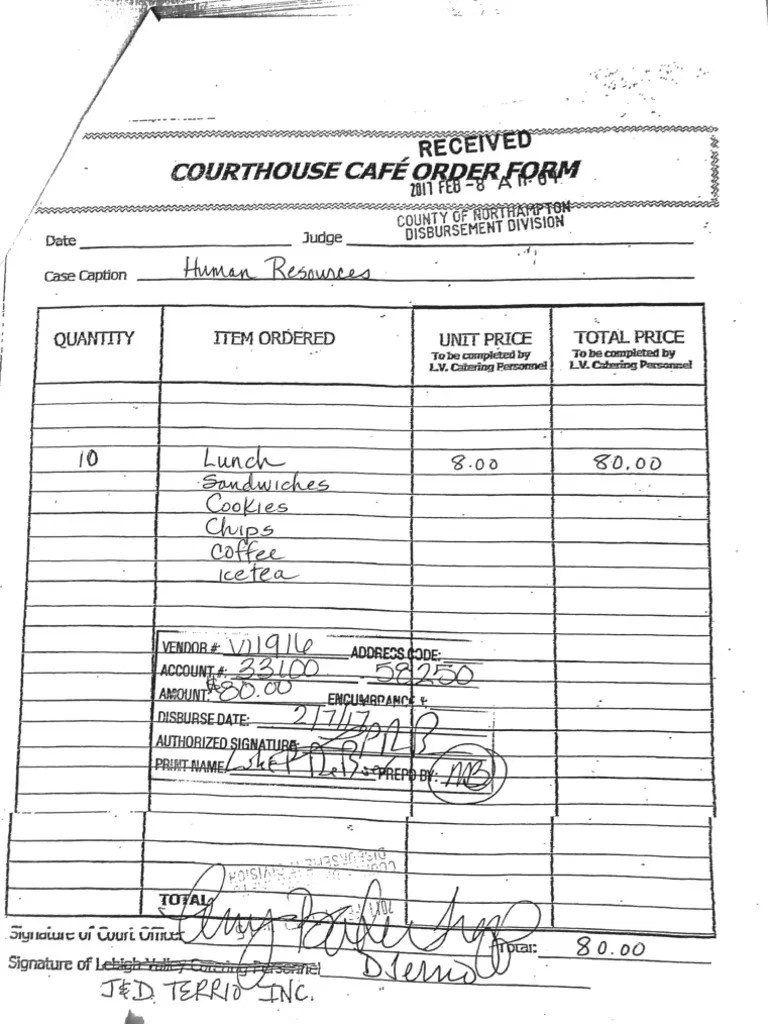 RECEIVED
COURTHOUSE CAFÉ ORDER FORM
2017 FEB -8 A 11: 04
COUNTY OF NORTHAMPTON
DISBURSEMENT DIVISION
Date Judge
Case Caption Human Resources
QUANTITY ITEM ORDERED UNIT PRICE TOTAL PRICE
To be completed by To be completed by
L.V. Catering Personnel L.V. Catering Personnel
10 Lunch 8.00 80.00
Sandwiches
Cookies
Chips
Coffee
icetea
VENDOR #: V11916 ADDRESS CODE:
ACCOUNT #: 33100 - 58250
AMOUNT: $80.00 ENCUMBRANCE #:
DISBURSE DATE: 2/7/17
AUTHORIZED SIGNATURE:
PRINT NAME: PREP'D BY: MB
TOTAL
Signature of Court Officer Total: 80.00
Signature of Lehigh Valley Catering Personnel D Terrio
J&D. TERRIO INC.